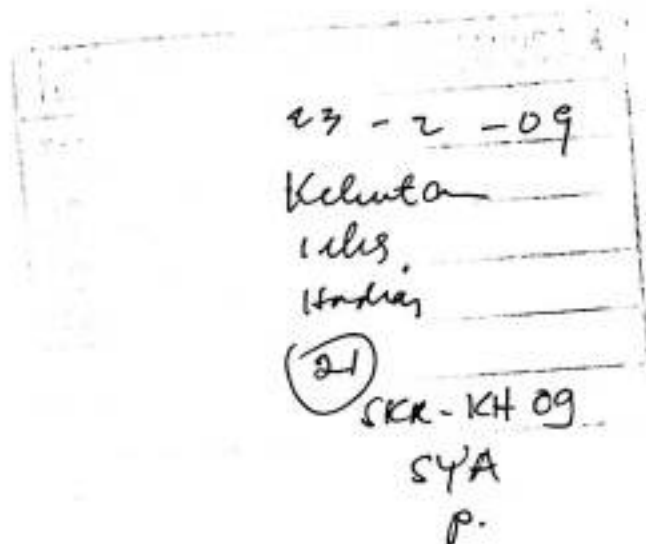 23 - 2 - 09
Kehutan
Hadiah
21
SKR - KH 09
SYA
P.